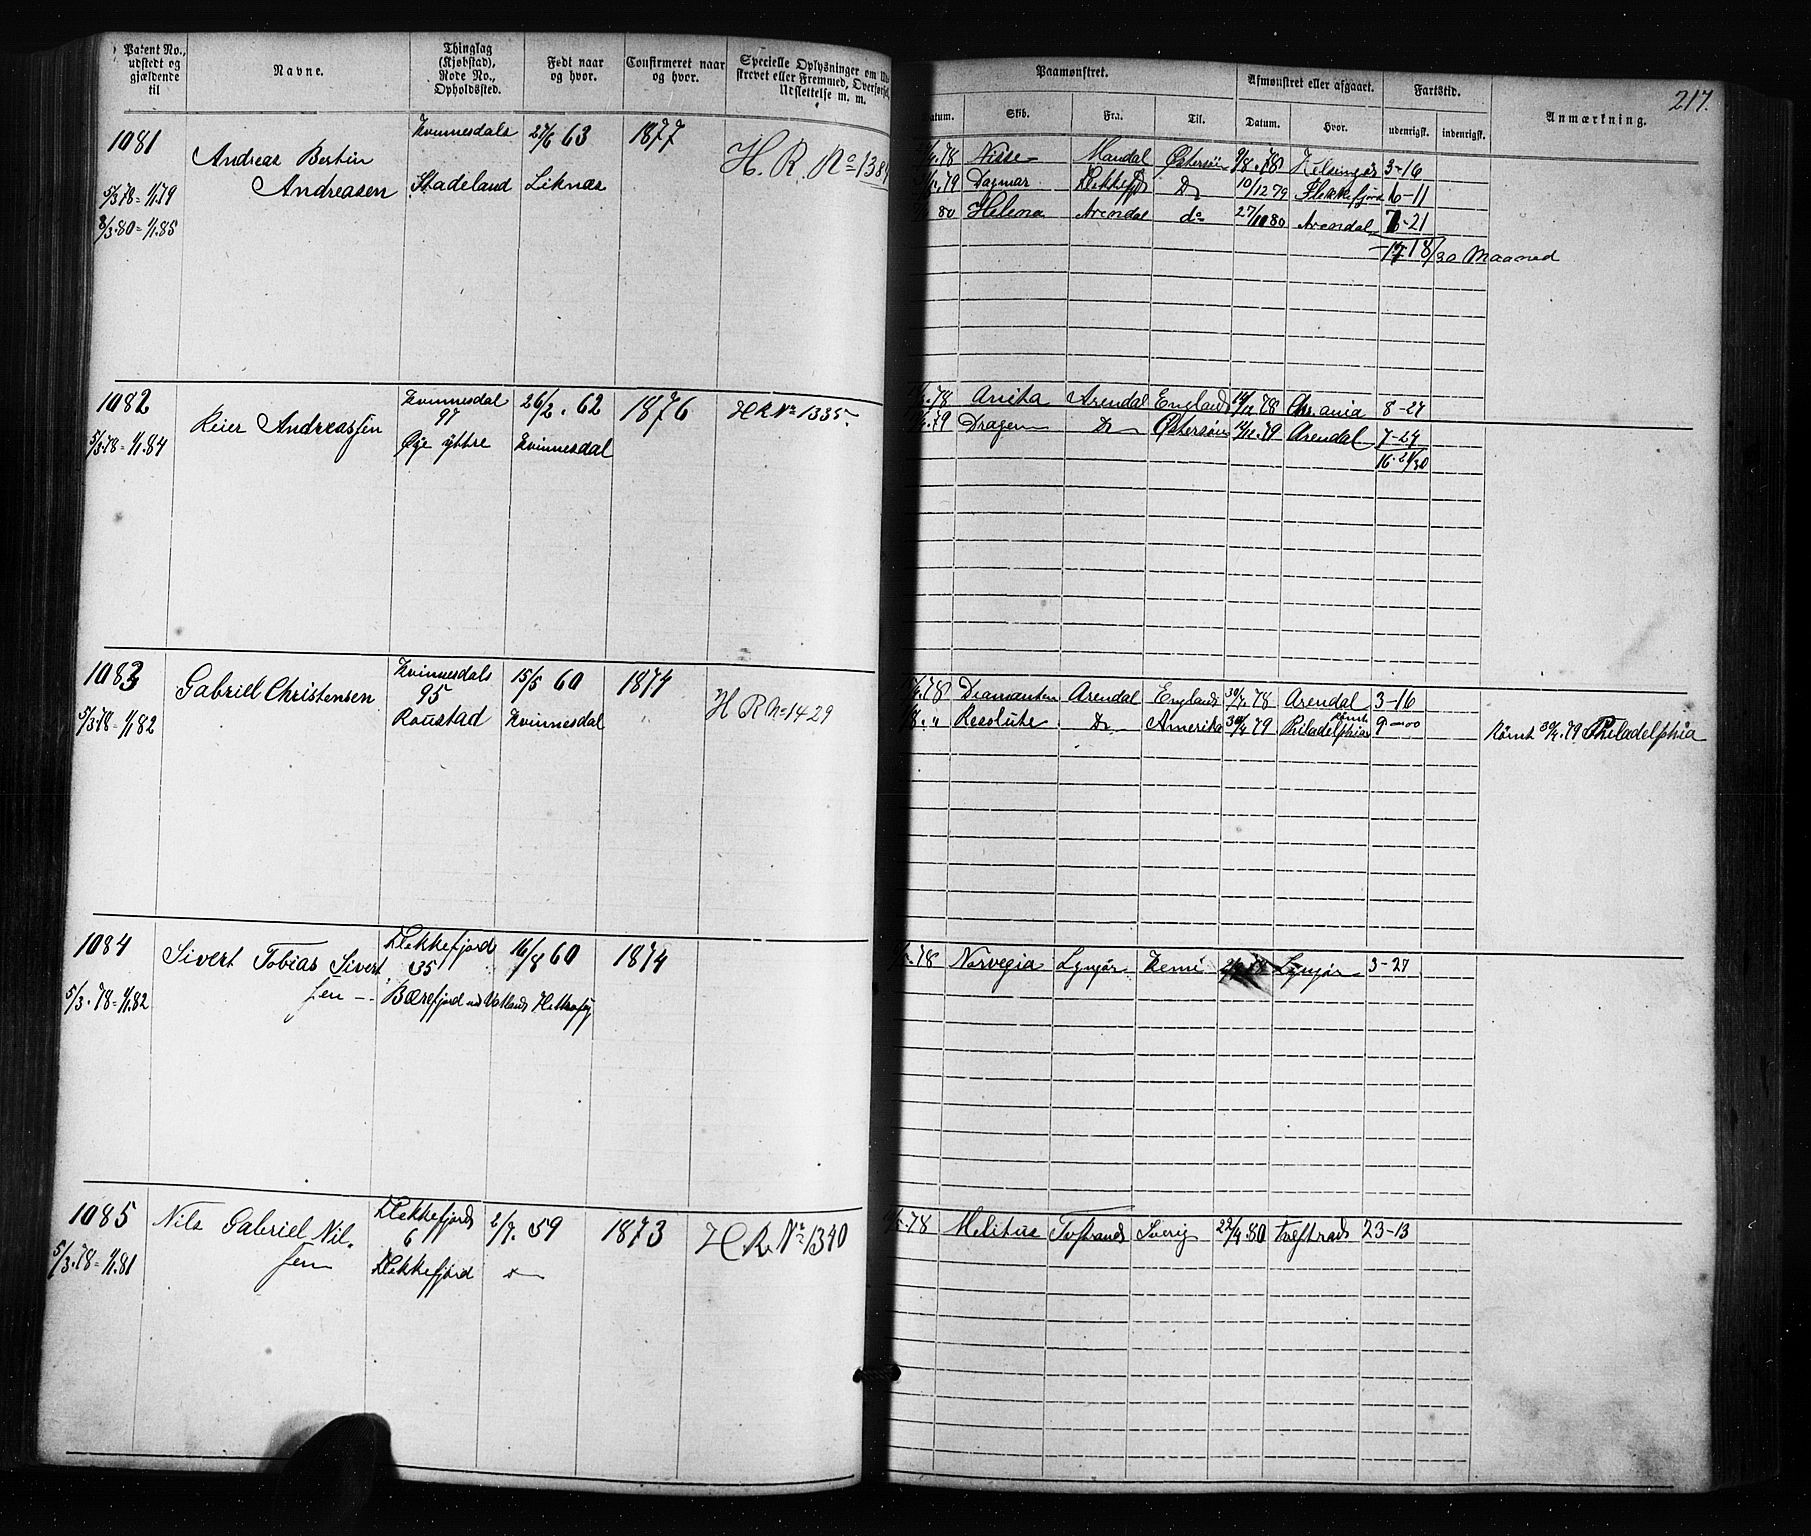 217.
Patent No., udstedt og gjældende til
Navne.
Thinglag (Kjøbstad), Rode No., Opholdssted.
Født naar og hvor.
Confirmeret naar og hvor.
Specielle Oplysninger om
eller Fremmed, Overførsel,
Udslettelse m. m.
Paamønstret.
Afmønstret eller afgaaet.
Fartstid.
Anmærkning.
Skib.
Fra:
Til.
Datum.
Hvor.
udenrigsk.
indenrigsk.
1081
Andreas Bertin
Andreasen
5/3.78=1/1.79
3/3.80=1/1.85
Kvinnesdals
Stadeland
27/6 63
Liknæs
1877
H. R. No 1389
78 Nisse Mandal Østersøen 9/8.78 Helsingør 3-16
79 Dagmar Flekkefj Do 10/12 79 Flekkefjord 6-11
80 Helena Arendal do 27/10 80 Arendal 7-21
17 18/30 Maaned
1082
Reier Andreassen
5/3.78=1/1.84
Kvinnesdal
97
Øye ÿttre
26/2. 62
Kvinnesdal
1876
H R No 1335.
78 Anita Arendal England 78 Chrania 8-27
79 Dragen Do Østersøen 14/12.79 Arendal 7-24
16.21/30
1083
Gabriel Christensen
5/3.78=1/1.82
Kvinnesdals
95
Roustad
15/5 60
Kvinnesdal
1874
H R No 1429
78 Diamanten Arendal England 30/7 78 Arendal 3-16
" Resolute Do Amerika 30/4 79 Philadelphia rømt 9-00
Rømt 30/4.79 Philadelphia
1084
Sivert Tobias Sivert
sen
5/3.78=1/1.82
Flekkefjord
35
Bærefjord
16/8 60
1874
78 Norvegia Lyngør Kemi Lyngør 3-27
1085
Nils Gabriel Nil-
sen
5/3.78=1/1.81
Flekkefjords
6
Flekkefjord
2/7. 59
1873
H. R. No 1340
78 Melitus Tvestrand Sverig 22/4.80 Tvestrand 23-13